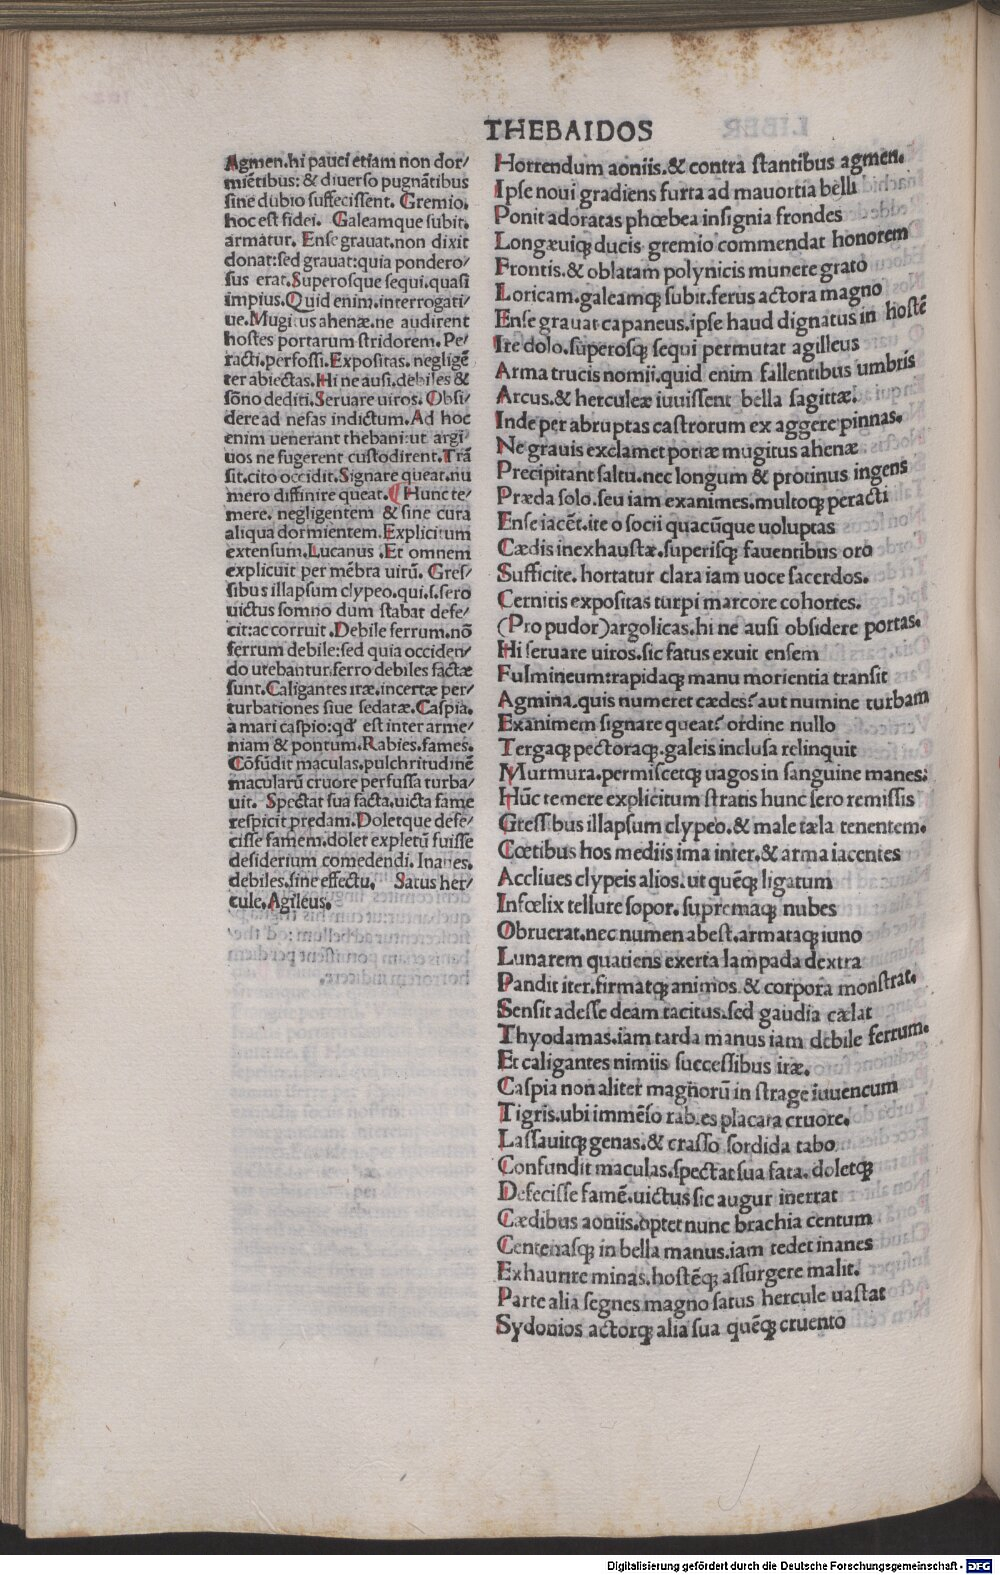 THEBAIDOS
Agmen.hi pauci etiam non dor/
miētibus: & diuerso pugnātibus
sine dubio suffecissent. Gremio.
hoc est fidei. Galeamque subit.
armatur. Ense grauat.non dixit
donat:sed grauat:quia pondero/
sus erat.Superosque sequi.quasi
impius.Quid enim.interrogati/
ue.Mugitus ahenæ.ne audirent
hostes portarum stridorem. Pe/
racti.perfossi.Expositas. negligē
ter abiectas.Hi ne ausi.debiles &
sōno dediti.Seruare uiros. Obsi/
dere ad nefas indictum.Ad hoc
enim uenerant thebani:ut argi
uos ne fugerent custodirent.Trā
sit.cito occidit.Signare queat.nu
mero diffinire queat. Hunc te/
mere. negligentem & sine cura
aliqua dormientem.Explicitum
extensum.Lucanus .Et omnem
explicuit per mēbra uirū. Gres/
sibus illapsum clypeo.qui.s.sero
uictus somno dum stabat defe/
cit:ac corruit .Debile ferrum.nō
ferrum debile:sed quia occiden/
do utebantur.ferro debiles factæ
sunt.Caligantes iræ.incertæ per/
turbationes siue sedatæ.Caspia.
a mari caspio:qd' est inter arme/
niam & pontum.Rabies.fames.
Cōfūdit maculas.pulchritudinē
macularū cruore perfussa turba/
uit. Spectat sua facta.uicta fame
respicit predam.Doletque defe/
cisse famem.dolet expletū fuisse
desiderium comedendi. Inanes.
debiles.sine effectu. Satus her/
cule.Agileus.
Horrendum aoniis.& contra stantibus agmen.
Ipse noui gradiens furta ad mauortia belli
Ponit adoratas phœbea insignia frondes
Longæuiq; ducis gremio commendat honorem
Frontis.& oblatam polynicis munere grato
Loricam.galeamq; subit.ferus actora magno
Ense grauat capaneus.ipse haud dignatus in hostē
Ire dolo.superosq; sequi permutat agilleus
Arma trucis nomii.quid enim fallentibus umbris
Arcus.& herculeæ iuuissent bella sagittæ.
Inde per abruptas castrorum ex aggere pinnas.
Ne grauis exclamet portæ mugitus ahenæ
Precipitant saltu.nec longum & protinus ingens
Præda solo.seu iam exanimes.multoq; peracti
Ense iacēt.ite o socii quacūque uoluptas
Cædis inexhaustæ.superisq; fauentibus oro
Sufficite. hortatur clara iam uoce sacerdos.
Cernitis expositas turpi marcore cohortes.
(Pro pudor)argolicas.hi ne ausi obsidere portas.
Hi seruare uiros.sic fatus exuit ensem
Fulmineum:rapidaq; manu morientia transit
Agmina.quis numeret cædes? aut numine turbam
Exanimem signare queat? ordine nullo
Tergaq; pectoraq;.galeis inclusa relinquit
Murmura.permiscetq; uagos in sanguine manes:
Hūc temere explicitum stratis hunc sero remissis
Gressibus illapsum clypeo.& male tæla tenentem.
Cœtibus hos mediis ima inter.& arma iacentes
Accliues clypeis alios.ut quēq; ligatum
Infœlix tellure sopor. supremaq; nubes
Obruerat.nec numen abest.armataq; iuno
Lunarem quatiens exerta lampada dextra
Pandit iter.firmatq; animos & corpora monstrat.
Sensit adesse deam tacitus.sed gaudia cælat
Thyodamas.iam tarda manus iam debile ferrum.
Et caligantes nimiis successibus iræ.
Caspia non aliter magnorū in strage iuuencum
Tigris.ubi immēso rabies placata cruore.
Lassauitq; genas.& crasso sordida tabo
Confundit maculas.spectat sua fata. doletq;
Defecisse famē.uictus sic augur inerrat
Cædibus aoniis.optet nunc brachia centum
Centenasq; in bella manus.iam tedet inanes
Exhaurire minas.hostēq; assurgere malit.
Parte alia segnes magno satus hercule uastat
Sydonios actorq; alia sua quēq; cruento
Digitalisierung gefördert durch die Deutsche Forschungsgemeinschaft - DFG